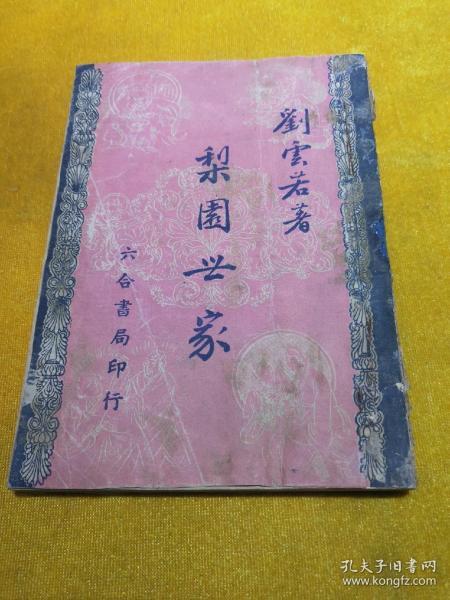 劉雲若著
梨園世家
六合書局印行
孔夫子旧书网
www.kongfz.com